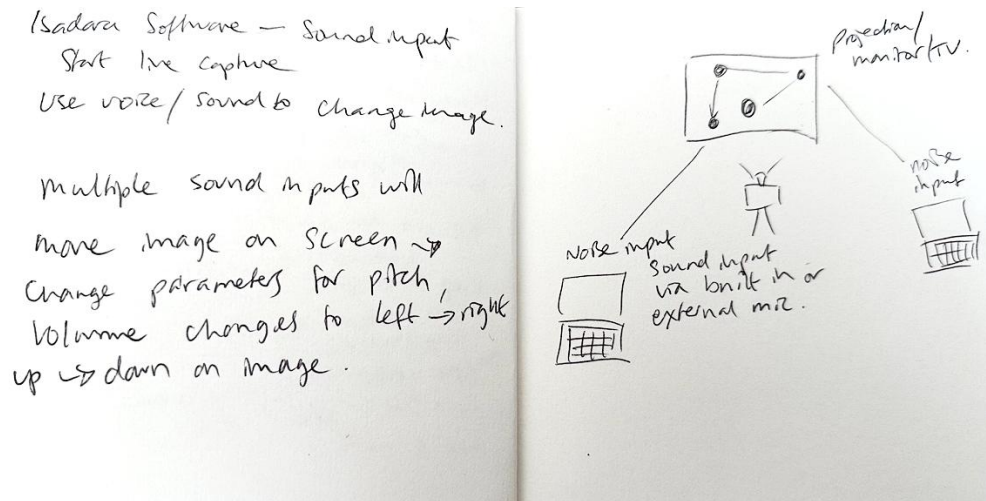 Isadora Software — Sound input
Start live capture
Use voice/sound to change image.
multiple sound inputs will
move image on screen →
change parameters for pitch,
volume changes to left → right
up → down on image.
projection/
monitor/TV.
noise
input
Noise input
Sound input
via built in or
external mic.